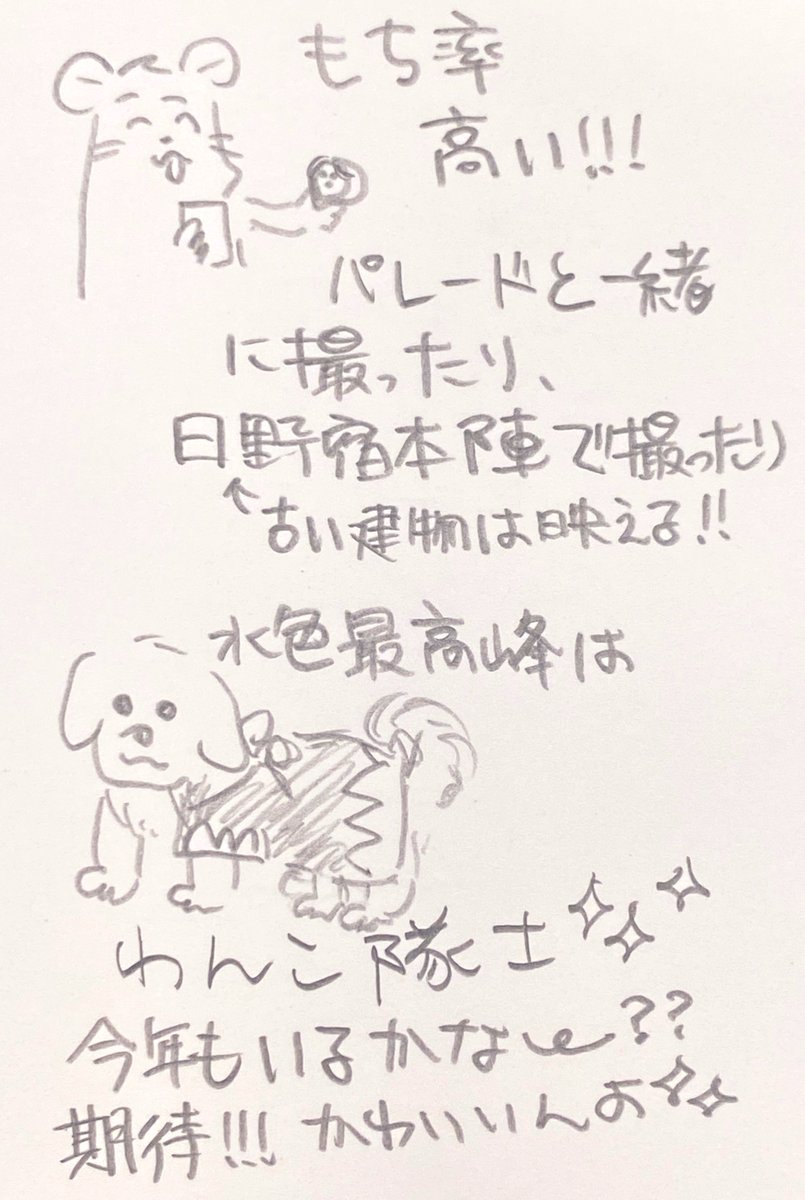 もち率
高い!!!
パレードと一緒
に撮ったり、
日野宿本陣で撮ったり
↑古い建物は映える!!
水色最高峰は
わんこ隊士
今年もいるかなe??
期待!!!かわいいんよ